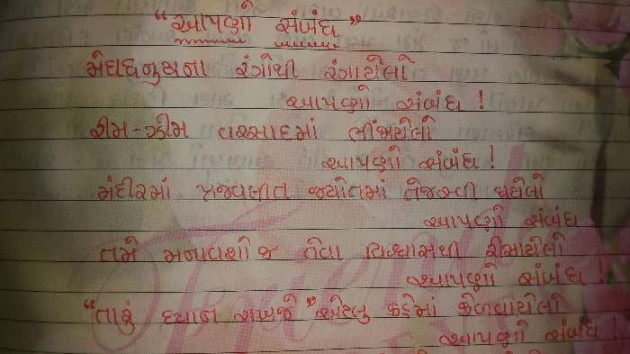 "આપણો સંબંધ"
મેઘધનુષના રંગોથી રંગાયેલો
આપણો સંબંધ !
રીમ-ઝીમ વરસાદમાં ભીંજાયેલો
આપણો સંબંધ !
મંદિરમાં પ્રજવલીત જ્યોતમાં તેજસ્વી થયેલો
આપણો સંબંધ
તમે મનાવશો જ તેવા વિશ્વાસથી રીસાયેલો
આપણો સંબંધ !
"તારું ધ્યાન રાખજે" એટલુ કહેમાં કેળવાયેલો
આપણો સંબંધ !